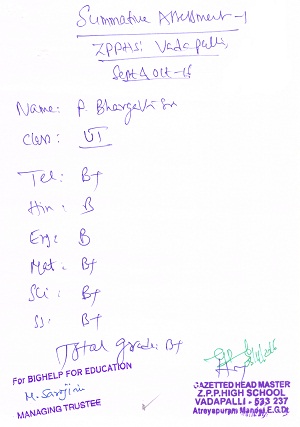 Summative Assessment-1
ZPPHS: Vadapalli,
Sept & Oct-16
Name: P. Bhargavi Sri
Class: VI
Tel: B+
Hin: B
Eng: B
Mat: B+
Sci: B+
SS: B+
Total grade: B+
For BIGHELP FOR EDUCATION
M. Sarojini
MANAGING TRUSTEE
GAZETTED HEAD MASTER
Z.P.P.HIGH SCHOOL
VADAPALLI - 533 237
Atreyapuram Mandal, E.G.Dt